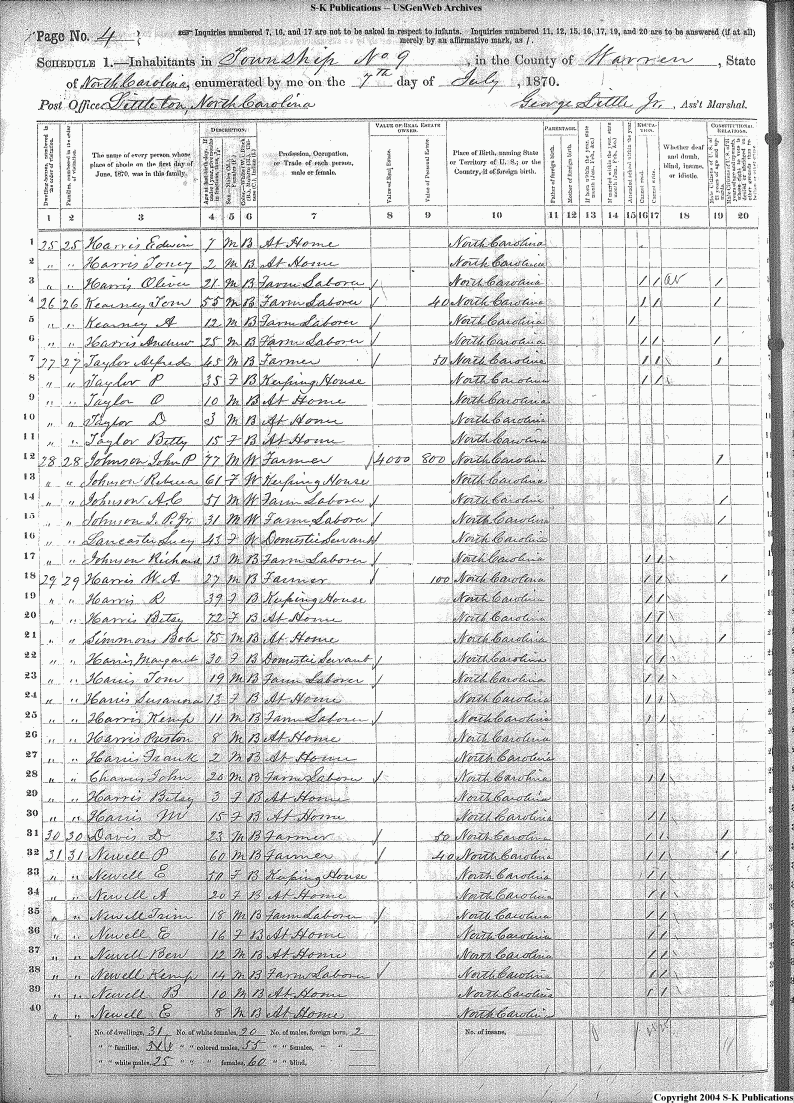 S-K Publications – USGenWeb Archives
Page No. 4
Inquiries numbered 7, 16, and 17 are not to be asked in respect to infants. Inquiries numbered 11, 12, 15, 16, 17, 19, and 20 are to be answered (if at all)
merely by an affirmative mark, as /.
SCHEDULE 1.—Inhabitants in Township No 9, in the County of Warren, State
of North Carolina, enumerated by me on the 7th day of July, 1870.
Post Office: Littleton, North Carolina George Little Jr, Ass't Marshal.
DESCRIPTION. VALUE OF REAL ESTATE OWNED. PARENTAGE. EDUCATION. CONSTITUTIONAL RELATIONS.
The name of every person whose place of abode on the first day of June, 1870, was in this family.
Profession, Occupation, or Trade of each person, male or female.
Value of Real Estate.
Value of Personal Estate.
Place of Birth, naming State or Territory of U. S.; or the Country, if of foreign birth.
Father of foreign birth.
Mother of foreign birth.
Whether deaf and dumb, blind, insane, or idiotic.
1 2 3 4 5 6 7 8 9 10 11 12 13 14 15 16 17 18 19 20
1 25 25 Harris Edwin 7 M B At Home North Carolina
2 " " Harris Toney 2 M B At Home North Carolina
3 " " Harris Oliver 21 M B Farm Laborer North Carolina / / /
4 26 26 Kearney Tom 55 M B Farm Laborer / 40 North Carolina / / /
5 " " Kearney A 12 M B Farm Laborer / North Carolina /
6 " " Harris Andrew 25 M B Farm Laborer / North Carolina / / /
7 27 27 Taylor Alfred 45 M B Farmer / 50 North Carolina / / /
8 " " Taylor P 35 F B Keeping House North Carolina / /
9 " " Taylor O 10 M B At Home North Carolina
10 " " Taylor D 3 M B At Home North Carolina
11 " " Taylor Betty 15 F B At Home North Carolina
12 28 28 Johnson John P 77 M W Farmer / 4000 800 North Carolina /
13 " " Johnson Rebecca 61 F W Keeping House North Carolina
14 " " Johnson A C 51 M W Farm Laborer / North Carolina /
15 " " Johnson J. P. Jr. 31 M W Farm Laborer / North Carolina /
16 " " Lancaster Lucy 43 F W Domestic Servant / North Carolina
17 " " Johnson Richard 13 M B Farm Laborer / North Carolina / /
18 29 29 Harris W A 27 M B Farmer / 100 North Carolina / / /
19 " " Harris R 39 F B Keeping House North Carolina / /
20 " " Harris Betsy 72 F B At Home North Carolina / /
21 " " Simmons Bob 75 M B At Home North Carolina / / /
22 " " Harris Margaret 30 F B Domestic Servant / North Carolina / /
23 " " Harris Tom 19 M B Farm Laborer / North Carolina / /
24 " " Harris Susanna 13 F B At Home North Carolina / /
25 " " Harris Kemp 11 M B Farm Laborer / North Carolina / /
26 " " Harris Preston 8 M B At Home North Carolina
27 " " Harris Frank 2 M B At Home North Carolina
28 " " Chavis John 20 M B Farm Laborer / North Carolina / /
29 " " Harris Betsy 3 F B At Home North Carolina
30 " " Harris M 15 F B At Home North Carolina / /
31 30 30 Davis D 23 M B Farmer / 50 North Carolina / / /
32 31 31 Newell P 60 M B Farmer / 40 North Carolina / / /
33 " " Newell E 50 F B Keeping House North Carolina / /
34 " " Newell A 20 F B At Home North Carolina / /
35 " " Newell Trim 18 M B Farm Laborer / North Carolina / /
36 " " Newell E 16 F B At Home North Carolina / /
37 " " Newell Ben 12 M B At Home North Carolina / /
38 " " Newell Kemp 14 M B Farm Laborer / North Carolina / /
39 " " Newell B 10 M B At Home North Carolina / /
40 " " Newell E 8 M B At Home North Carolina
No. of dwellings, 31 No. of white females, 20 No. of males, foreign born, 2 No. of insane,
" " families, " " colored males, 55 " " females, " "
" " white males, 25 " " " females, 60 " " blind,
Copyright 2004 S-K Publications